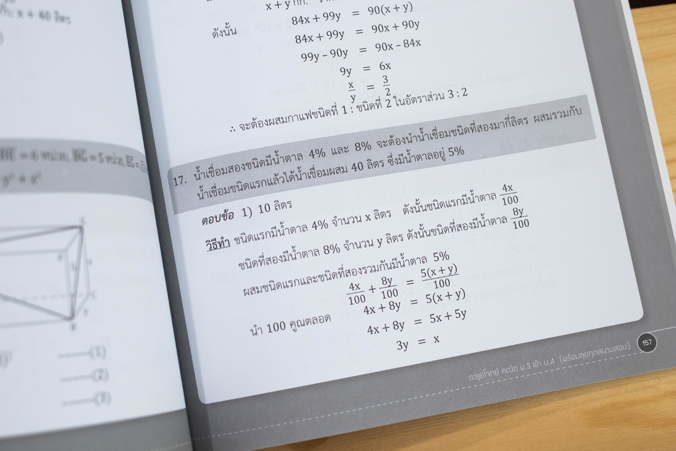 x + 40 ลิตร
x + y กก.
84x + 99y = 90(x + y)
ดังนั้น 84x + 99y = 90x + 90y
99y – 90y = 90x – 84x
9y = 6x
x/y = 3/2
∴ จะต้องผสมกาแฟชนิดที่ 1 : ชนิดที่ 2 ในอัตราส่วน 3 : 2
17. น้ำเชื่อมสองชนิดมีน้ำตาล 4% และ 8% จะต้องนำน้ำเชื่อมชนิดที่สองมากี่ลิตร ผสมรวมกับ
น้ำเชื่อมชนิดแรกแล้วได้น้ำเชื่อมผสม 40 ลิตร ซึ่งมีน้ำตาลอยู่ 5%
ตอบข้อ 1) 10 ลิตร
วิธีทำ ชนิดแรกมีน้ำตาล 4% จำนวน x ลิตร ดังนั้นชนิดแรกมีน้ำตาล 4x/100
ชนิดที่สองมีน้ำตาล 8% จำนวน y ลิตร ดังนั้นชนิดที่สองมีน้ำตาล 8y/100
ผสมชนิดแรกและชนิดที่สองรวมกันมีน้ำตาล 5%
4x/100 + 8y/100 = 5(x + y)/100
นำ 100 คูณตลอด 4x + 8y = 5(x + y)
4x + 8y = 5x + 5y
3y = x
(1)
(2)
(3)
ตะลุยโจทย์ คณิต ม.3 เข้า ม.4 (พร้อมลุยทุกสนามสอบ) 157